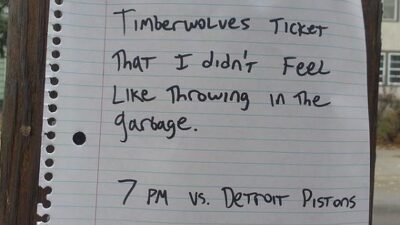 Timberwolves Ticket
That I didn't Feel
Like Throwing in The
garbage.
7 PM vs. Detroit Pistons